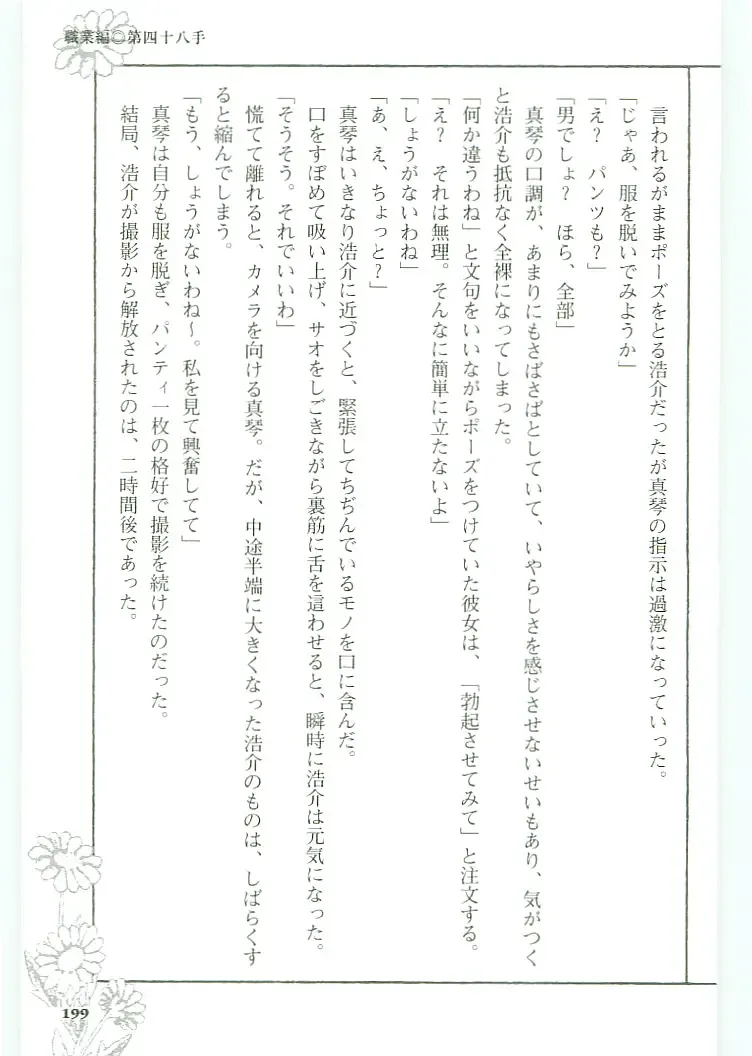 職業編◎第四十八手
言われるがままポーズをとる浩介だったが真琴の指示は過激になっていった。
「じゃあ、服を脱いでみようか」
「え？　パンツも？」
「男でしょ？　ほら、全部」
真琴の口調が、あまりにもさばさばとしていて、いやらしさを感じさせないせいもあり、気がつく
と浩介も抵抗なく全裸になってしまった。
「何か違うわね」と文句をいいながらポーズをつけていた彼女は、「勃起させてみて」と注文する。
「え？　それは無理。そんなに簡単に立たないよ」
「しょうがないわね」
「あ、え、ちょっと？」
真琴はいきなり浩介に近づくと、緊張してちぢんでいるモノを口に含んだ。
口をすぼめて吸い上げ、サオをしごきながら裏筋に舌を這わせると、瞬時に浩介は元気になった。
「そうそう。それでいいわ」
慌てて離れると、カメラを向ける真琴。だが、中途半端に大きくなった浩介のものは、しばらくす
ると縮んでしまう。
「もう、しょうがないわね〜。私を見て興奮してて」
真琴は自分も服を脱ぎ、パンティ一枚の格好で撮影を続けたのだった。
結局、浩介が撮影から解放されたのは、二時間後であった。
199